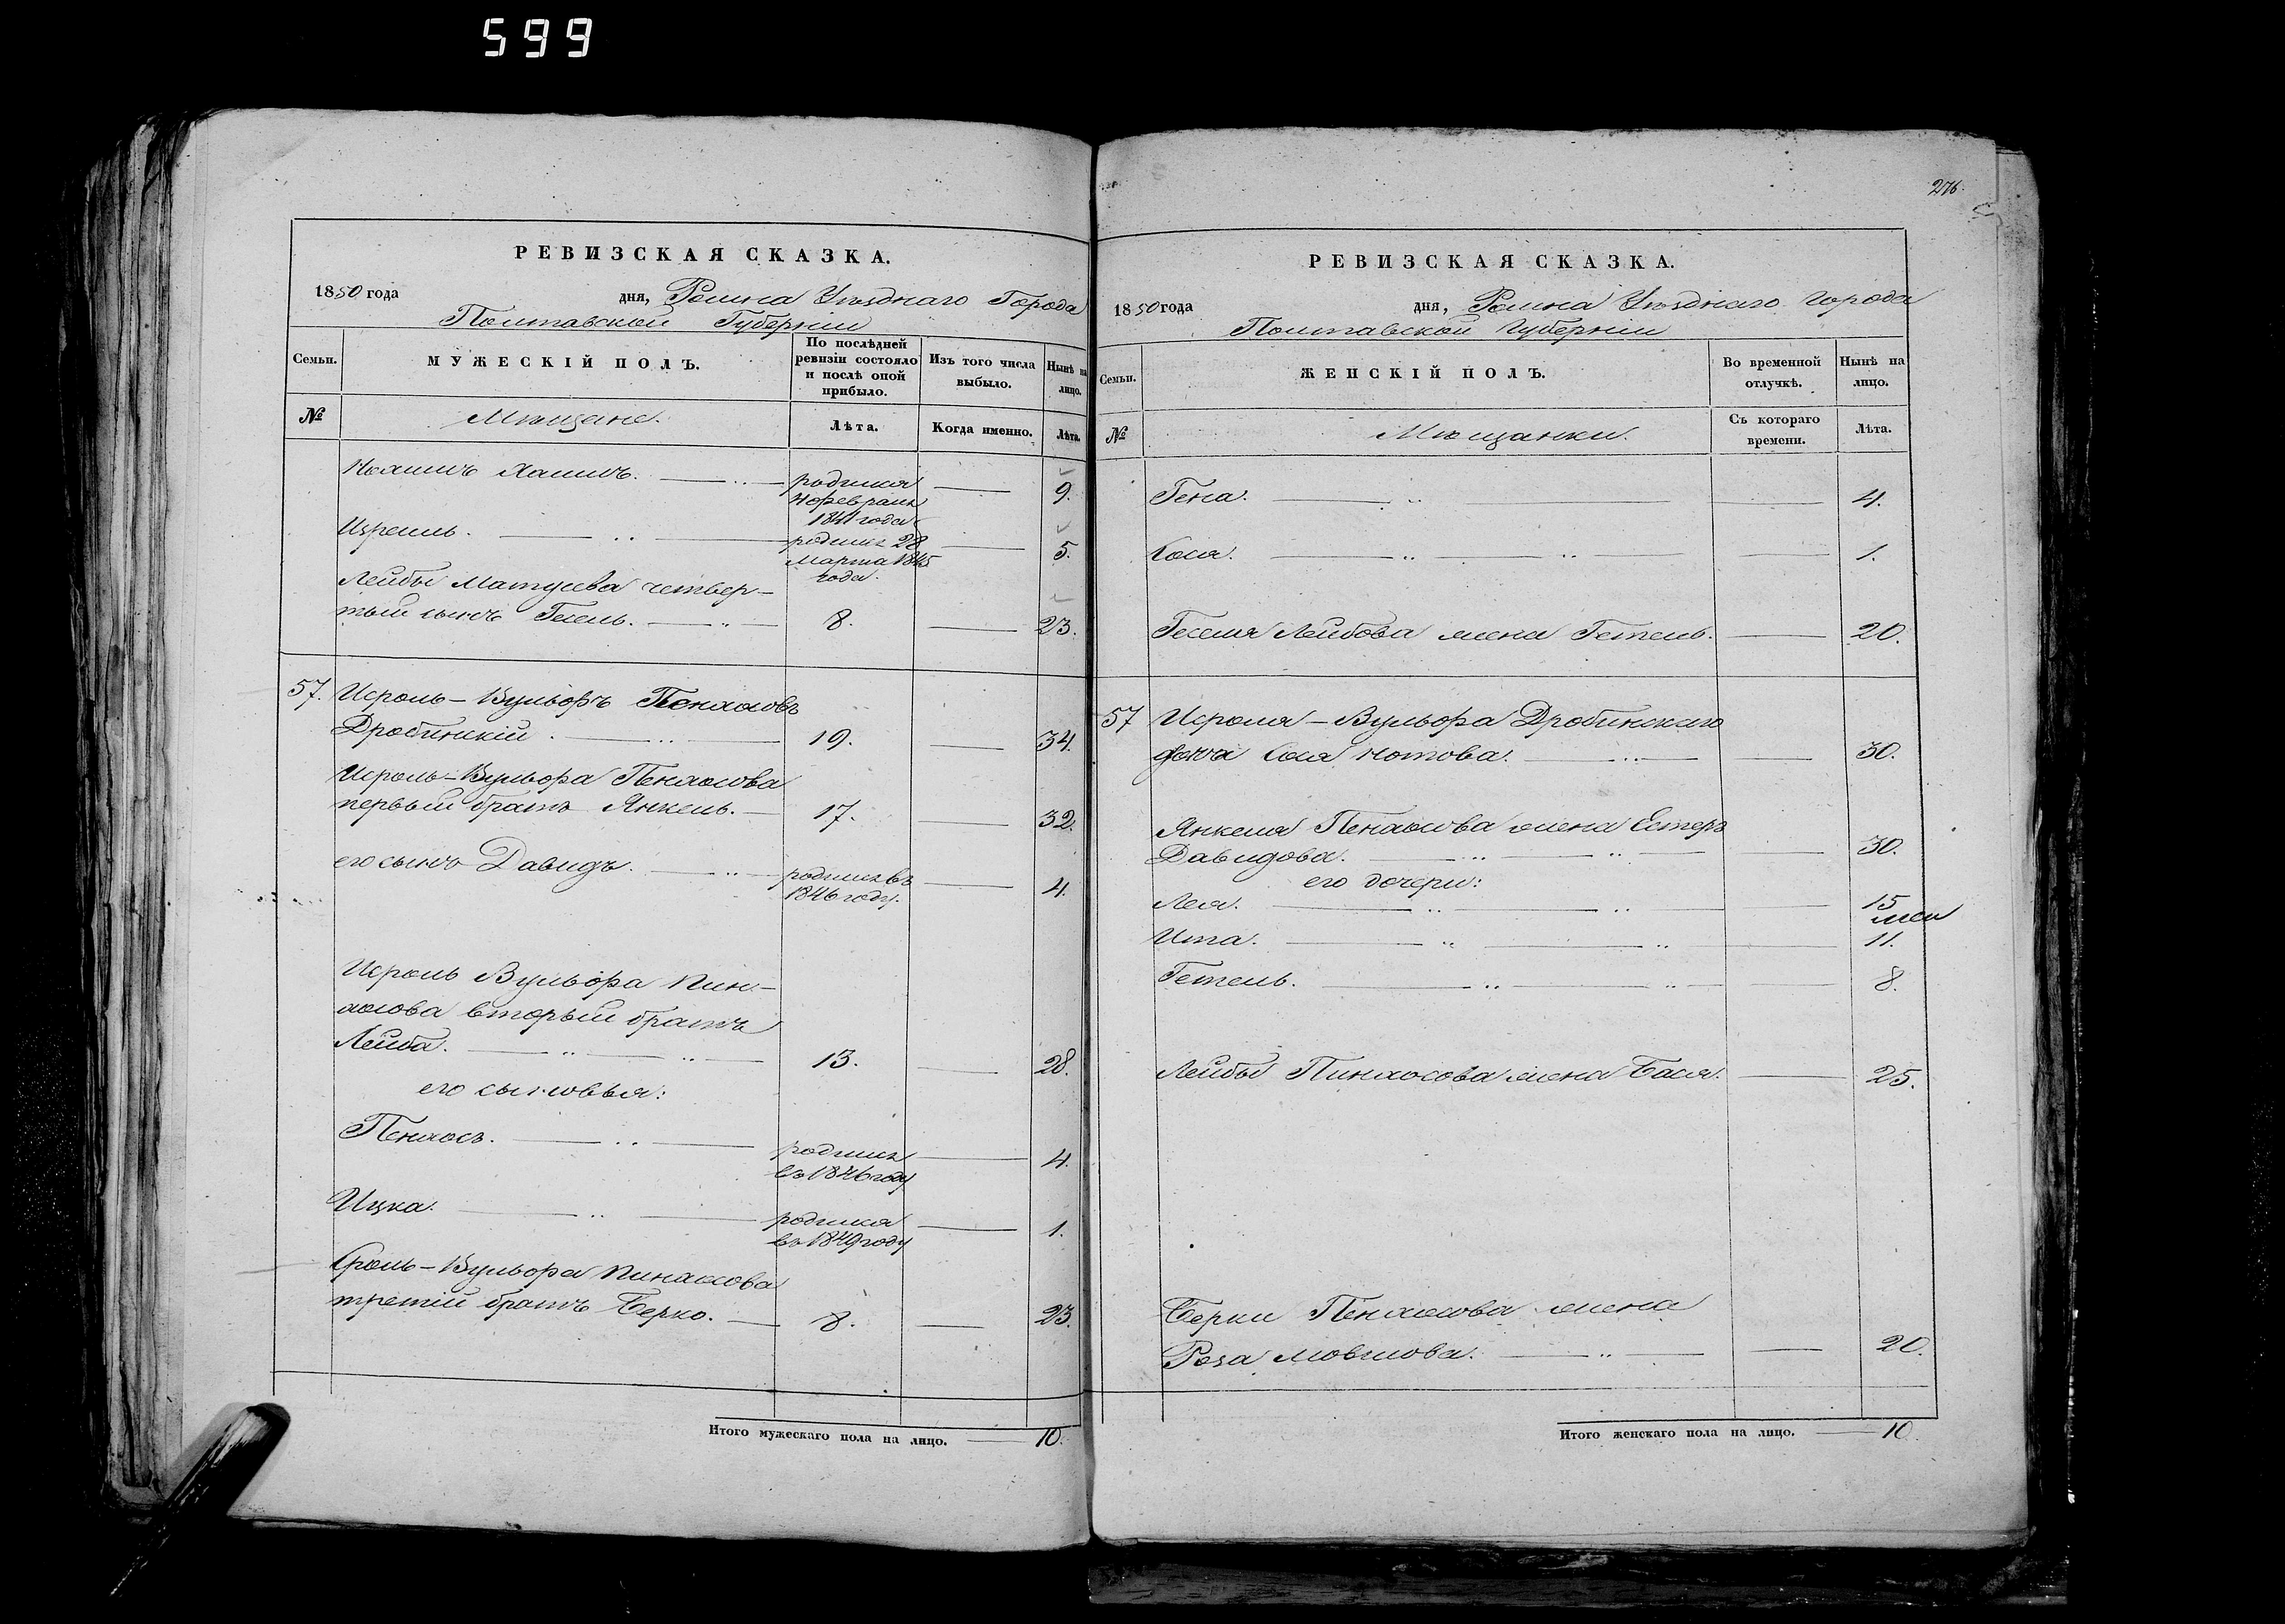 599
276
РЕВИЗСКАЯ СКАЗКА.
1850 года дня, Ромна Уѣзднаго Города
Полтавской Губерніи
Семьи. МУЖЕСКІЙ ПОЛЪ. По послѣдней ревизіи состояло и послѣ оной прибыло. Изъ того числа выбыло. Нынѣ на лицо.
№ Мѣщане. Лѣта. Когда именно. Лѣта.
Хаимъ. родился 9.
февраля
1841 года
Израиль. родился 28 5.
марта 1845
года.
Лейбы Матусева четвер-
тый сынъ 8. 23.
57. Исроль-Вульфъ Пенхасовъ
Дробинскій. 19. 34.
Исроль-Вульфа Пенхасова
первый братъ Янкель. 17. 32.
его сынъ Давидъ. родился въ 4.
1846 году.
Исроль Вульфа Пин-
хасова вторый братъ
Лейба. 13. 28.
его сыновья:
Пенхосъ. родился 4.
въ 1846 году
Ицка. родился 1.
въ 1849 году
Сроль-Вульфа Пинхасова
третій братъ Берко. 8. 23.
Итого мужескаго пола на лицо. 10.
РЕВИЗСКАЯ СКАЗКА.
1850 года дня, Ромна Уѣзднаго Города
Полтавской Губерніи
Семьи. ЖЕНСКІЙ ПОЛЪ. Во временной отлучкѣ. Нынѣ на лицо.
№ Мѣщанки. Съ котораго времени. Лѣта.
Гена. 4.
Хася. 1.
Лейбова жена Гетель. 20.
57 Исроля-Вульфа Дробинскаго
жена Хася Нотова. 30.
Янкеля Пенхасова жена Естеръ
Давидова. 30.
его дочери:
Лея. 15
Ита. 11.
Гетель. 8.
Лейбы Пинхосова жена Бася. 25.
Берки Пенхасова жена
Роза Мовшова. 20.
Итого женскаго пола на лицо. 10.